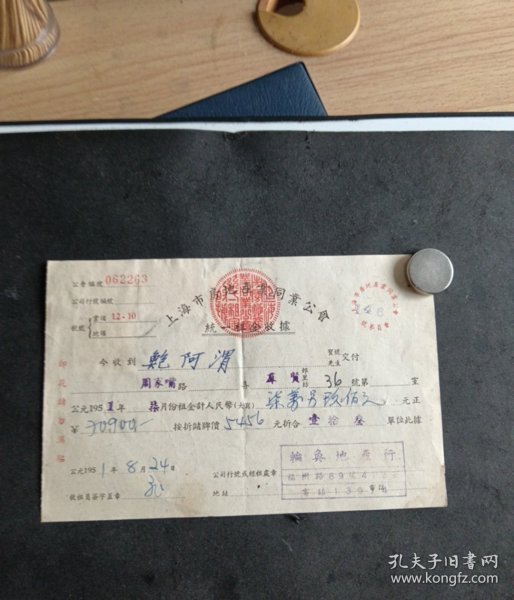 公會編號 062263
公司行號編號
上海市房地產業同業公會
統一租金收據
號數
業處 12-10
今收到 鮑阿渭
寶號
先生
交付
周家嘴 路 弄 36 號第 室
公元195 1 年 柒 月份租金計人民幣(大寫) 柒萬 另玖佰元 元正
¥ 70900—
按折儲牌價 5456 元折合 壹拾叁 單位此據
公元195 1 年 8 月 24 日
公司行號或經租處章
收租員簽字蓋章
地址
地產行
福州路89號
孔夫子旧书网
www.kongfz.com